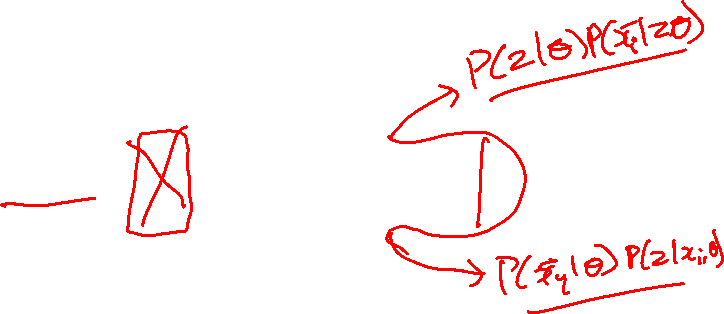 P(z|θ)P(x̄ᵢ|zθ)
P(x̄ᵢ|θ)P(z|xᵢ,θ)